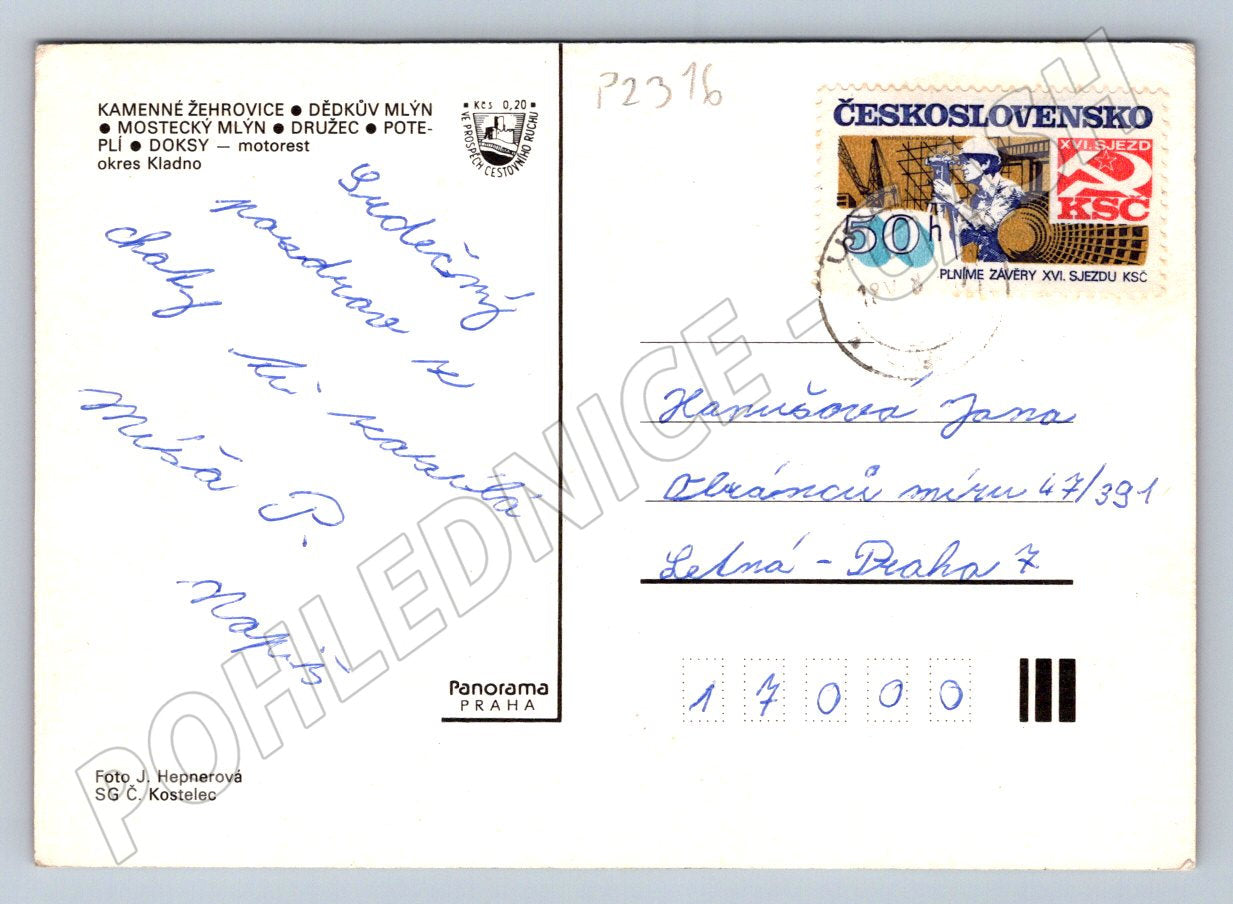 KAMENNÉ ŽEHROVICE ● DĚDKŮV MLÝN
● MOSTECKÝ MLÝN ● DRUŽEC ● POTE-
PLÍ ● DOKSY — motorest
okres Kladno
Kčs 0,20
VE PROSPĚCH CESTOVNÍHO RUCHU
Srdečný
pozdrav z
chaty Ti posílá
Míša P.
Napiš
Panorama
PRAHA
Foto J. Hepnerová
SG Č. Kostelec
P2316
ČESKOSLOVENSKO
XVI. SJEZD
KSČ
50h
PLNÍME ZÁVĚRY XVI. SJEZDU KSČ
Hanušová Jana
Obránců míru 47/391
Letná - Praha 7
17000
POHLEDNICE - CASH